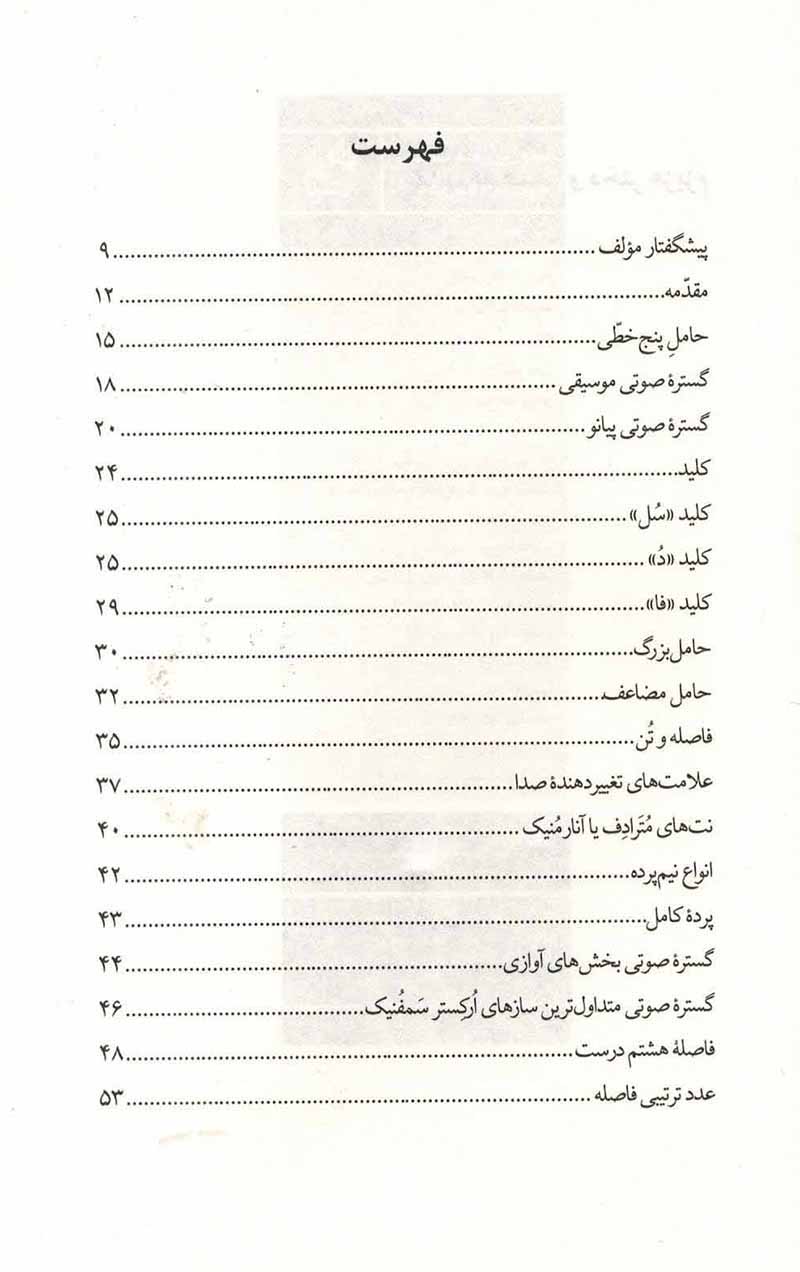 فهرست
پیشگفتار مؤلف ........ ۹
مقدّمه ........ ۱۲
حاملِ پنج‌خطّی ........ ۱۵
گسترهٔ صوتی موسیقی ........ ۱۸
گسترهٔ صوتی پیانو ........ ۲۰
کلید ........ ۲۴
کلید «سُل» ........ ۲۵
کلید «دُ» ........ ۲۵
کلید «فا» ........ ۲۹
حامل بزرگ ........ ۳۰
حامل مضاعف ........ ۳۲
فاصله و تُن ........ ۳۵
علامت‌های تغییردهندهٔ صدا ........ ۳۷
نت‌های مُتَرادِف یا آنارمُنیک ........ ۴۰
انواع نیم‌پرده ........ ۴۲
پردهٔ کامل ........ ۴۳
گسترهٔ صوتی بخش‌های آوازی ........ ۴۴
گسترهٔ صوتی متداول‌ترین سازهای اُرکِستر سَمفُنیک ........ ۴۶
فاصلهٔ هشتم درست ........ ۴۸
عدد ترتیبی فاصله ........ ۵۳